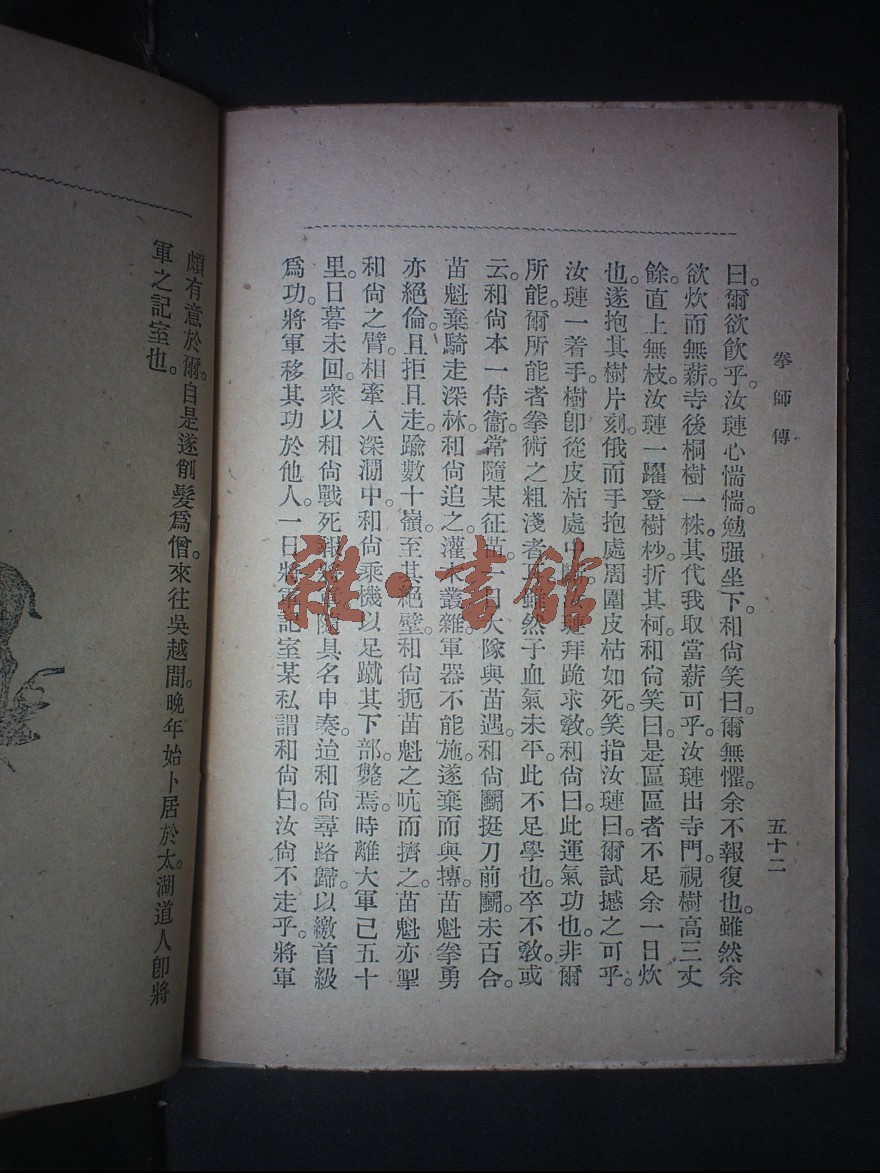 拳師傳
五十二
曰。爾欲飲乎。汝璉心惴惴。勉强坐下。和尙笑曰。爾無懼。余不報復也。雖然余
欲炊而無薪。寺後桐樹一株。其代我取當薪可乎。汝璉出寺門。視樹高三丈
餘。直上無枝。汝璉一躍登樹杪。折其柯。和尙笑曰。是區區者不足余一日炊
也。遂抱其樹片刻。俄而手抱處周圍皮枯如死。笑指汝璉曰。爾試撼之可乎。
汝璉一着手。樹卽從皮枯處中斷。汝璉拜跪求敎。和尙曰。此運氣功也。非爾
所能。爾所能者拳術之粗淺者耳。雖然子血氣未平。此不足學也。卒不敎。或
云。和尙本一侍衞。常隨某征苗。一日大隊與苗遇。和尙鬭挺刀前鬭。未百合。
苗魁棄騎走深林。和尙追之。灌木叢雜。軍器不能施。遂棄而與摶。苗魁拳勇
亦絕倫。且拒且走。踰數十嶺。至其絕壁。和尙扼苗魁之吭而擠之。苗魁亦掣
和尙之臂。相牽入深澗中。和尙乘機以足蹴其下部。斃焉。時離大軍已五十
里。日暮未回。衆以和尙戰死報將軍。隨具名申奏。迨和尙尋路歸。以繳首級
爲功。將軍移其功於他人。一日將軍記室某私謂和尙曰。汝尙不走乎。將軍
頗有意於爾。自是遂削髮爲僧。來往吳越間。晚年始卜居於太湖道人卽將
軍之記室也。
雜·書館